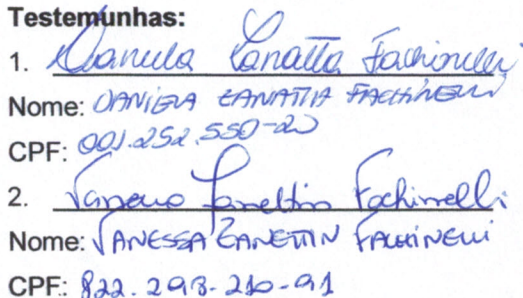 Testemunhas:
1. Daniela Zanatta Fachinelli
Nome: DANIELA ZANATTA FACHINELLI
CPF: 001.252.550-20
2. Vanessa Zanettin Fachinelli
Nome: VANESSA ZANETTIN FACHINELLI
CPF: 822.293.210-91